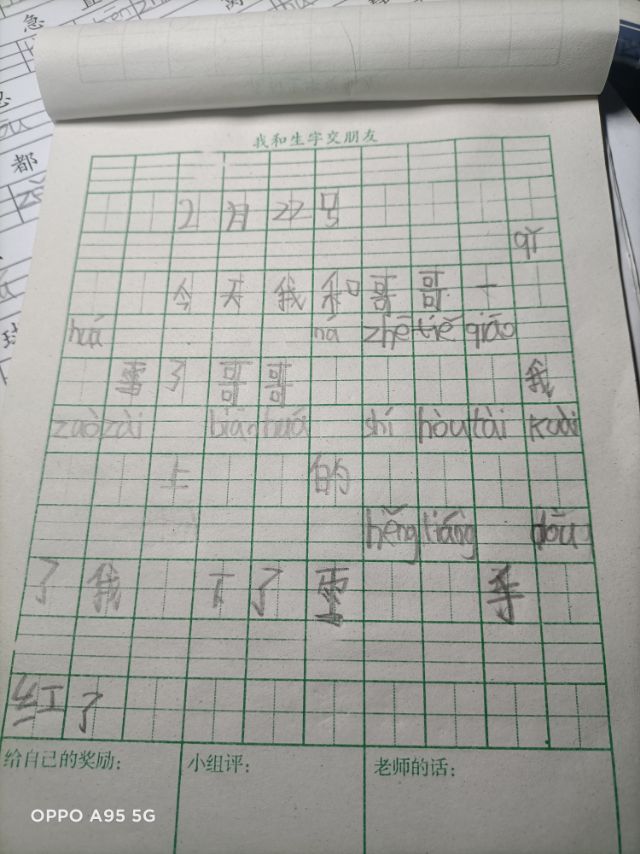 急
都
我和生字交朋友
2月22号
qǐ
今天我和哥哥一
huá ná zhē tiě qiāo
雪了哥哥 我
zuò zài biān huá shí hòu tài kuài
上 的
hěng liǎng dōu
了我 下了雪 手
红了
给自己的奖励: 小组评: 老师的话:
OPPO A95 5G